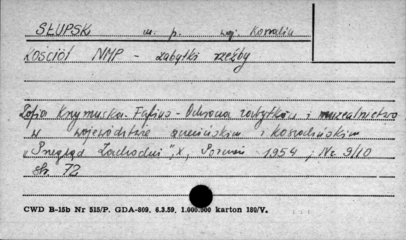 SŁUPSK m. p. woj. Koszalin
Kościół NMP - zabytki rzeźby
Zofia Krzymuska-Fafius - Ochrona zabytków i muzealnictwo
w województwie szczecińskim i koszalińskim
"Przegląd Zachodni", X, Poznań 1954, Nr 9/10
str. 72
CWD B-15b Nr 515/P. GDA-809, 6.3.59, 1.000.000 karton 180/V.